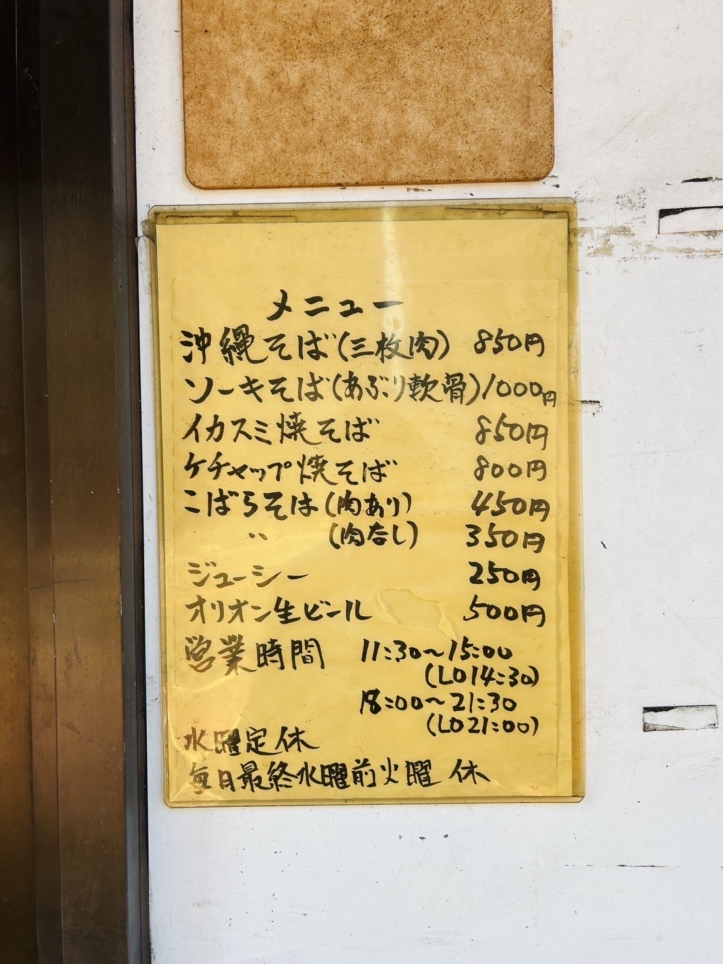 メニュー
沖縄そば(三枚肉) 850円
ソーキそば(あぶり軟骨) 1000円
イカスミ焼そば 850円
ケチャップ焼そば 800円
こばらそば(肉あり) 450円
〃 (肉なし) 350円
ジューシー 250円
オリオン生ビール 500円
営業時間 11:30〜15:00
(LO14:30)
18:00〜21:30
(LO21:00)
水曜定休
毎日最終水曜前火曜 休